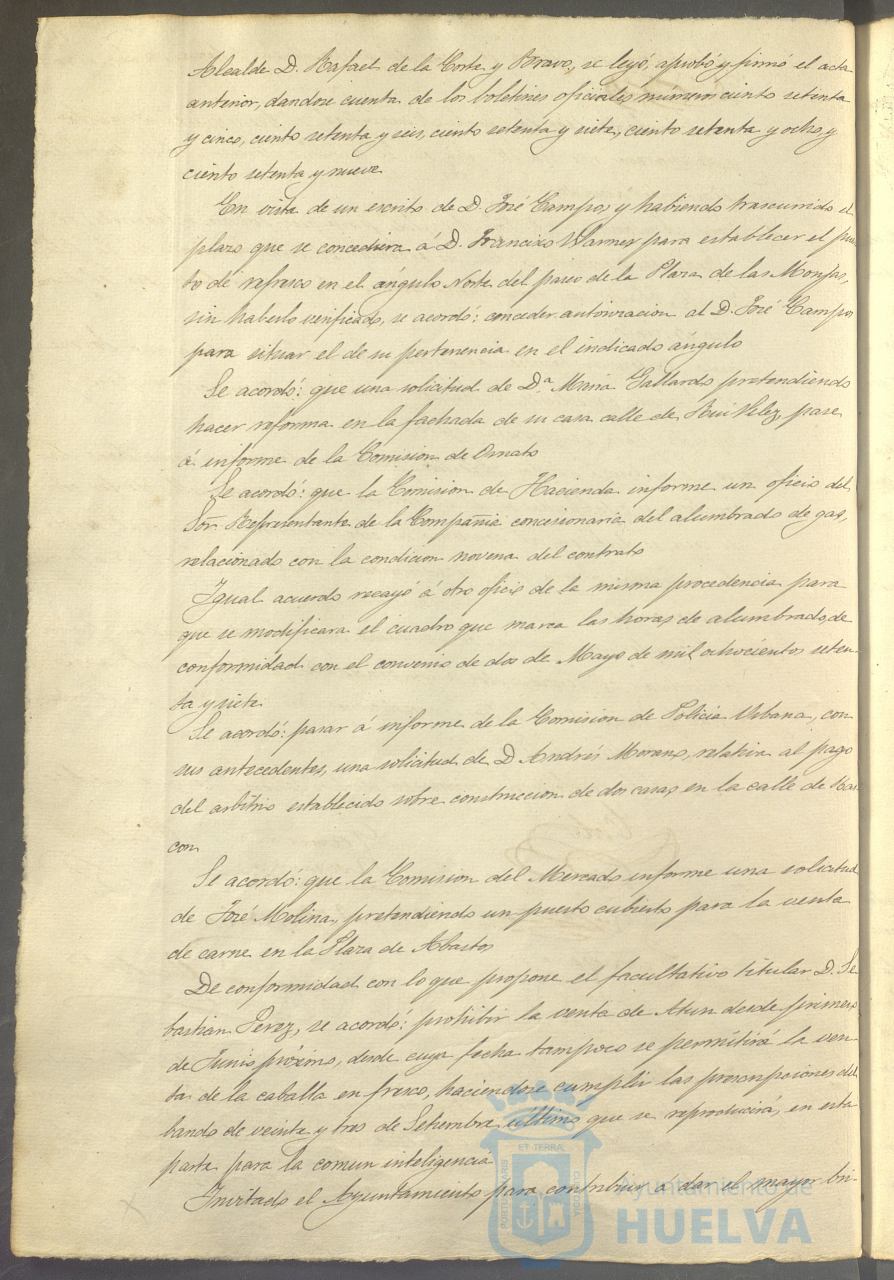 Alcalde D. Rafael de la Corte y Bravo, se leyó, aprobó y firmó el acta
anterior, dandose cuenta de los boletines oficiales números ciento setenta
y cinco, ciento setenta y seis, ciento setenta y siete, ciento setenta y ocho, y
ciento setenta y nueve
En vista de un escrito de D. José Campos y habiendo trascurrido el
plazo que se concediera á D. Francisco Warner para establecer el pues
to de refresco en el ángulo Norte del paseo de la Plaza de las Monjas,
sin haberlo verificado, se acordó: conceder autorizacion al D. José Campos
para situar el de su pertenencia en el indicado ángulo
Se acordó: que una solicitud de D.ª Maria Gallardo pretendiendo
hacer reforma en la fachada de su casa calle de Rui Velez, pase
á informe de la Comision de Ornato
Se acordó: que la Comision de Hacienda informe un oficio del
Sor. Representante de la Compañia concesionaria del alumbrado de gas,
relacionado con la condicion novena del contrato
Igual acuerdo recayó á otro oficio de la misma procedencia para
que se modificara el cuadro que marca las horas de alumbrado, de
conformidad con el convenio de dos de Mayo de mil ochocientos seten-
ta y siete
Se acordó: pasar á informe de la Comision de Policia Urbana, con
sus antecedentes, una solicitud de D Andrés Moreno, relativa al pago
del arbitrio establecido sobre construccion de dos casas en la calle de Ras
con
Se acordó: que la Comision del Mercado informe una solicitud
de José Molina, pretendiendo un puesto cubierto para la venta
de carne en la Plaza de Abastos
De conformidad con lo que propone el facultativo titular D. Se
bastian Perez, se acordó: prohibir la venta de Atun desde primero
de Junio próximo, desde cuya fecha tampoco se permitirá la ven-
ta de la caballa en fresco, haciendose cumplir las prescripciones del
bando de veinte y tres de Setiembre último que se reproducirá, en esta
parte para la comun inteligencia
Invitado el Ayuntamiento para contribuir a dar el mayor bri-
PORTUS MARIS
ET TERRÆ
CUSTODIA
Ayuntamiento de
HUELVA